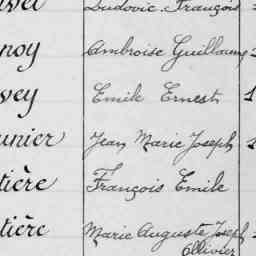 Ludovic François
noy Ambroise Guillaume
vey Emile Ernest 1
unier Jean Marie Joseph 1
tière François Emile
tière Marie Auguste Joseph
Ollivier